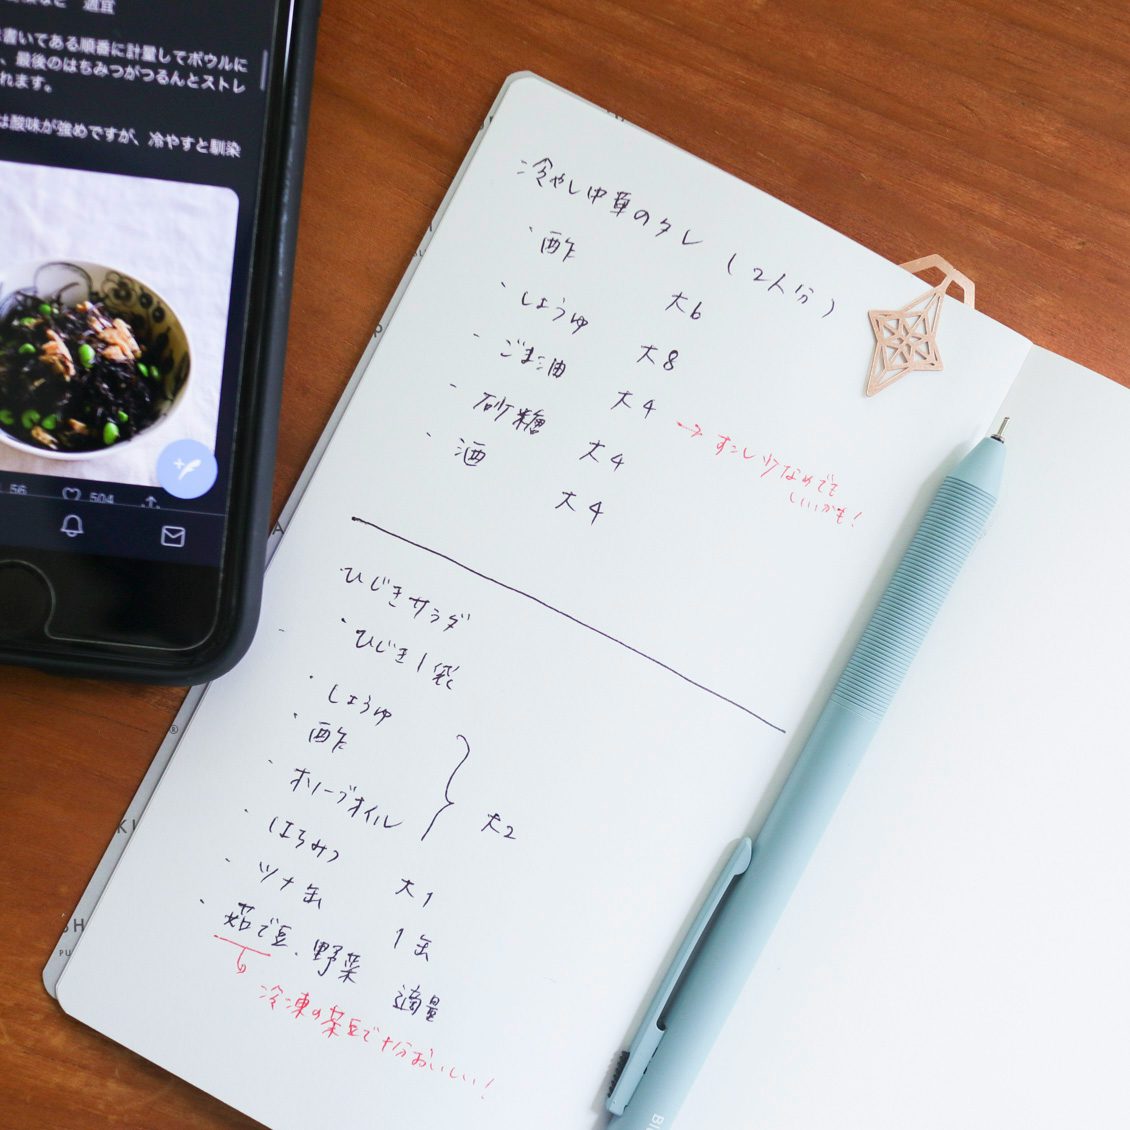 適宜
書いてある順番に計量してボウルに
、最後のはちみつがつるんとストレ
れます。
は酸味が強めですが、冷やすと馴染
56 504
冷やし中華のタレ (2人分)
・酢 大6
・しょうゆ 大8
・ごま油 大4
・砂糖 大4 → すこし少なめでも
いいかも!
・酒 大4
ひじきサラダ
・ひじき1袋
・しょうゆ
・酢
・オリーブオイル 大2
・はちみつ 大1
・ツナ缶 1缶
・茹で豆、野菜 適量
冷凍の茶豆で十分おいしい!